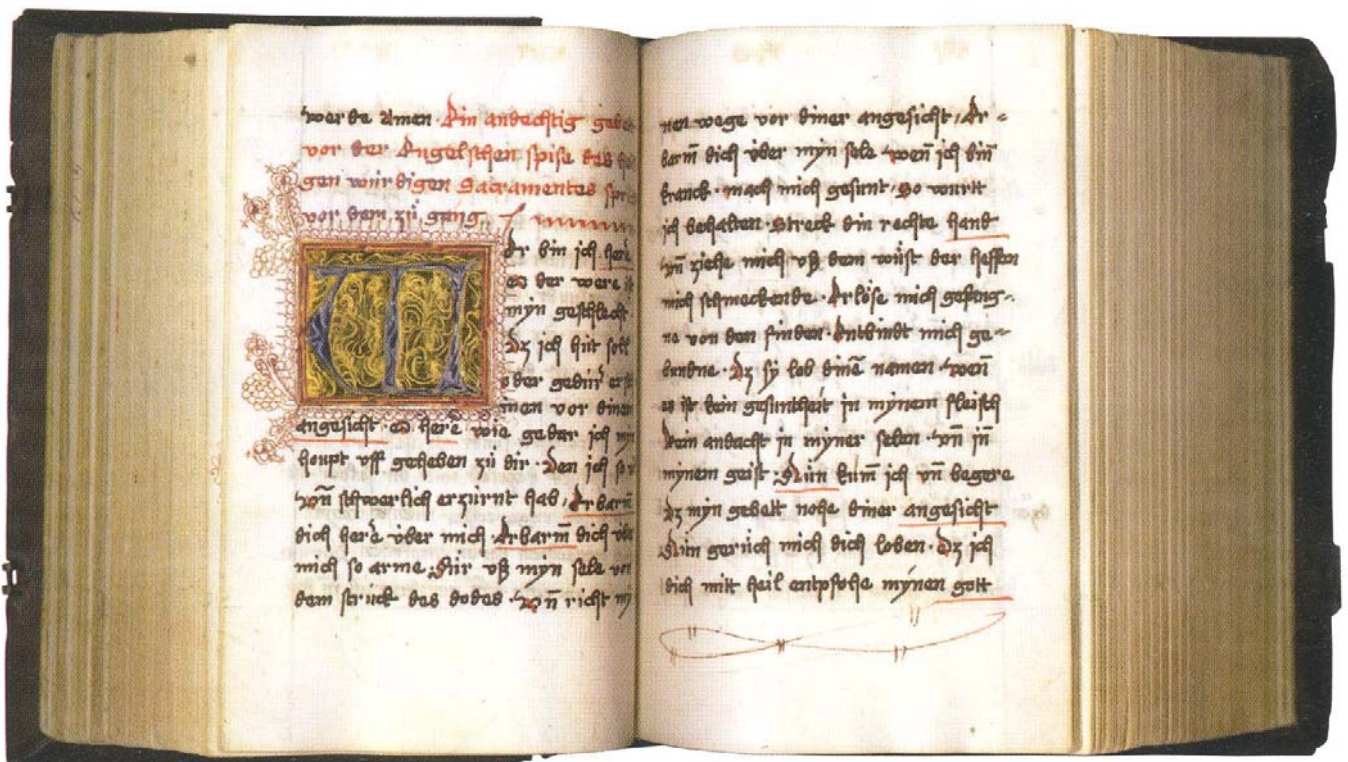 werde Amen · Ein andechtig gebet
vor der Engelschen spise des hei
gen würdigen Sacramentes spr
vor dem zů gang
W
Er bin ich herē
o der were
myn geschlecht
Dz ich hüt soll
oder gedür
inen vor diner
angesicht · o herē wie gedar ich my
houpt vff geheben zů dir · Den ich so
vn̄ schwerlich erzürnt hab / Erbarm̄
dich herē vber mich · Erbarm̄ dich vbe
mich so arme · Für vß myn sele vō
dem strick des dodes · vn̄ richt my
nen wege vor diner angesicht / Er -
barm̄ dich vber myn sele wen̄ ich bin̄
kranck · mach mich gesunt / So wurtt
ich behalten · Streck din rechte hand
vn̄ ziehe mich vß dem wüst der heffen
mich schmeckende · Erlöse mich gefang-
ne von den finden · Entbindt mich ge-
bundne · Dz sy lob dinē namen · wen̄
es ist kein gesuntheit in mynem fleisch
kein andacht in myner selen · vn̄ jn̄
mynem geist · Nůn kum̄ ich vn̄ begere
dz myn gebett nohe diner angesicht
Nůn gerüch mich dich loben · Dz ich
dich mitt heil entpfohe mynen gott